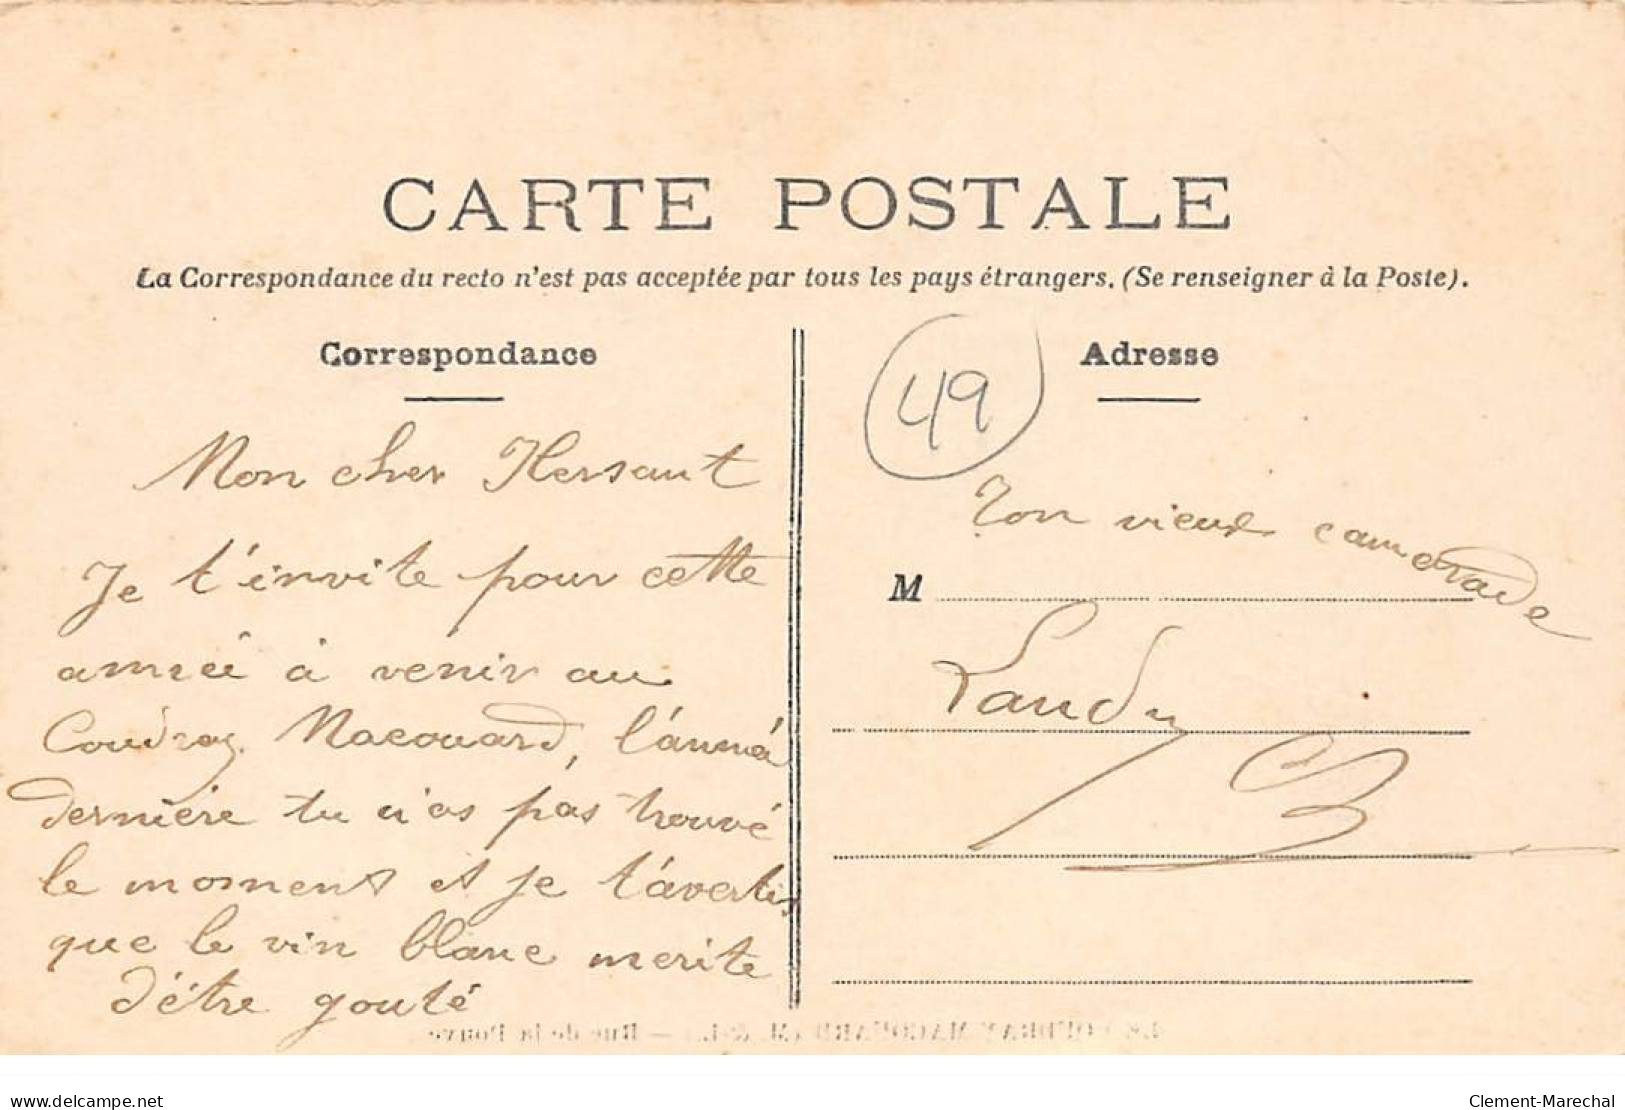 CARTE POSTALE
La Correspondance du recto n'est pas acceptée par tous les pays étrangers. (Se renseigner à la Poste).
Correspondance
Mon cher Hersaut
Je t'invite pour cette
année à venir au
Coudray Macouard, l'année
dernière tu n'as pas trouvé
le moment et je t'avertis
que le vin blanc merite
d'être gouté
49
Adresse
Ton vieux camarade
M
Landry
MACOUARD (M.-&-L.) — Rue de la
www.delcampe.net
Clement-Marechal